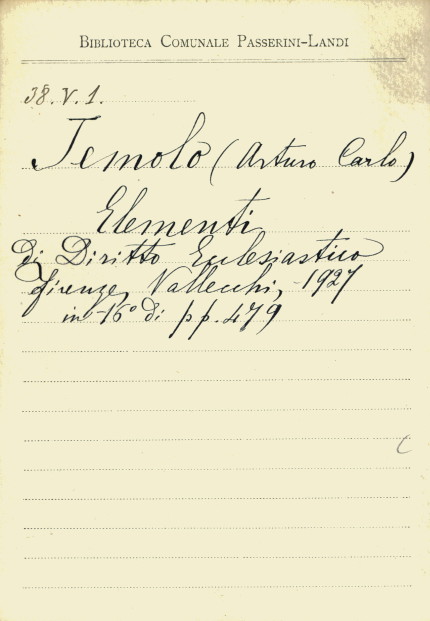 BIBLIOTECA COMUNALE PASSERINI-LANDI
38.V.1.
Jemolo (Arturo Carlo)
Elementi
di Diritto Eculesiastico
Firenze, Vallecchi, 1927
in-16° di pp. 479
C